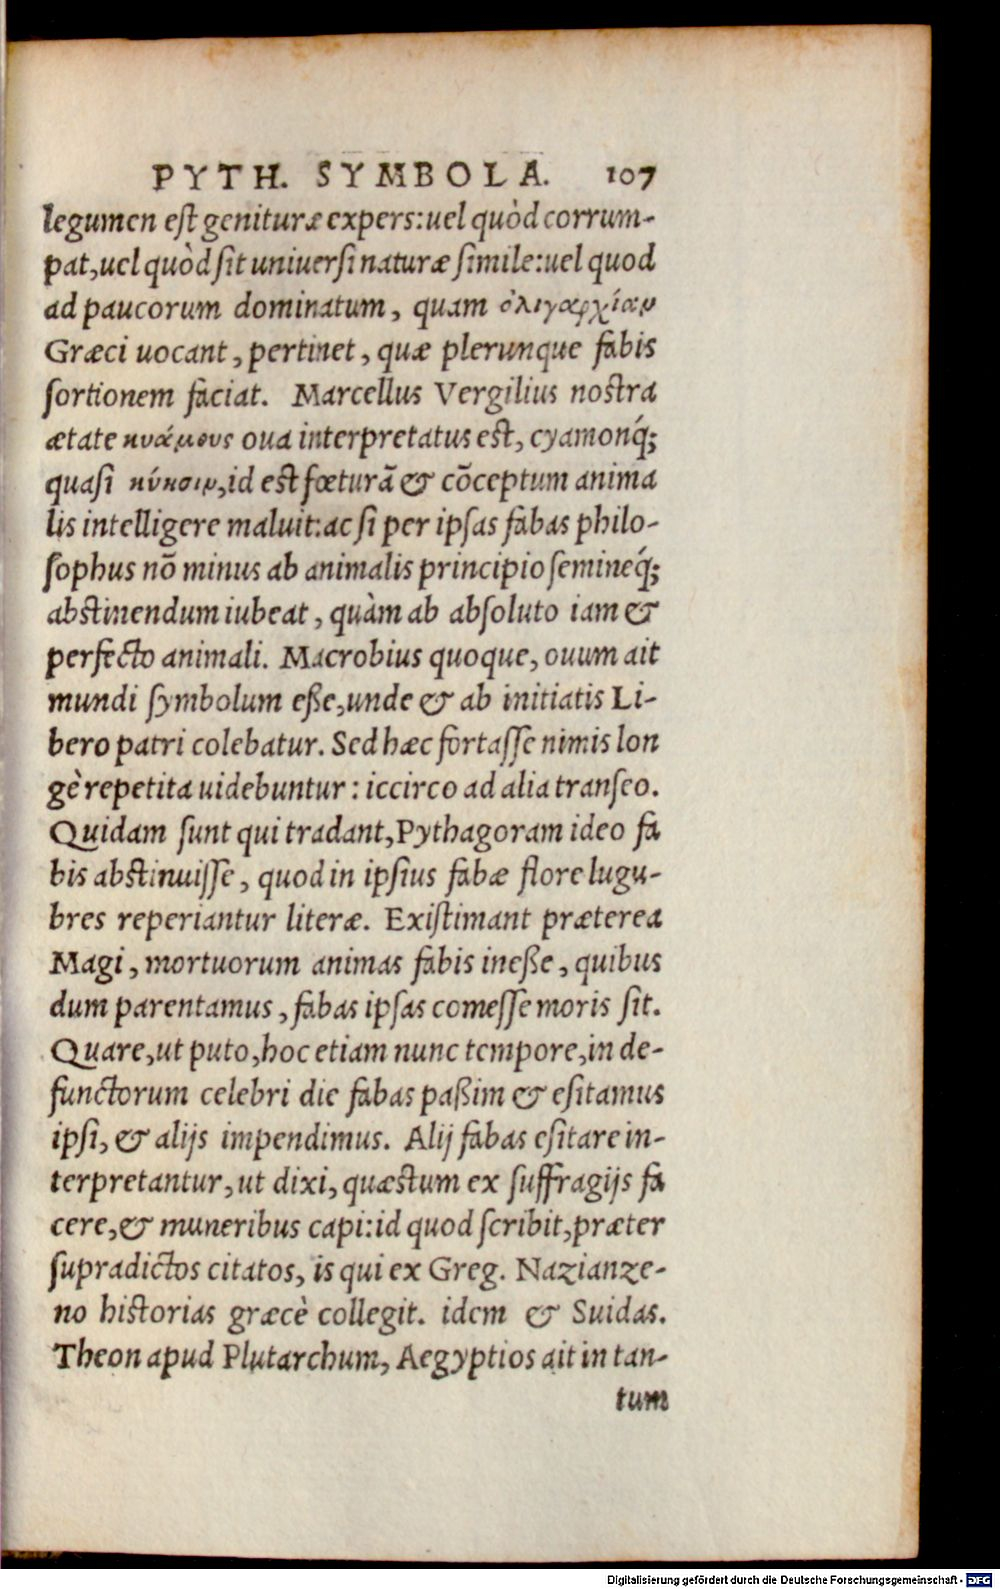 PYTH. SYMBOLA. 107
legumen est genituræ expers: uel quòd corrum-
pat, uel quòd sit uniuersi naturæ simile: uel quod
ad paucorum dominatum, quam ὀλιγαρχίαν
Græci uocant, pertinet, quæ plerunque fabis
sortionem faciat. Marcellus Vergilius nostra
ætate κυάμους oua interpretatus est, cyamonq́;
quasi κύησιν, id est fœturā & cōceptum anima
lis intelligere maluit: ac si per ipsas fabas philo-
sophus nō minus ab animalis principio semineq́;
abstinendum iubeat, quàm ab absoluto iam &
perfecto animali. Macrobius quoque, ouum ait
mundi symbolum eße, unde & ab initiatis Li-
bero patri colebatur. Sed hæc fortasse nimis lon
gè repetita uidebuntur: iccirco ad alia transeo.
Quidam sunt qui tradant, Pythagoram ideo fa
bis abstinuisse, quod in ipsius fabæ flore lugu-
bres reperiantur literæ. Existimant præterea
Magi, mortuorum animas fabis ineße, quibus
dum parentamus, fabas ipsas comesse moris sit.
Quare, ut puto, hoc etiam nunc tempore, in de-
functorum celebri die fabas paßim & esitamus
ipsi, & alijs impendimus. Alij fabas esitare in-
terpretantur, ut dixi, quæstum ex suffragijs fa
cere, & muneribus capi: id quod scribit, præter
supradictos citatos, is qui ex Greg. Nazianze-
no historias græcè collegit. idem & Suidas.
Theon apud Plutarchum, Aegyptios ait in tan-
tum
Digitalisierung gefördert durch die Deutsche Forschungsgemeinschaft - DFG